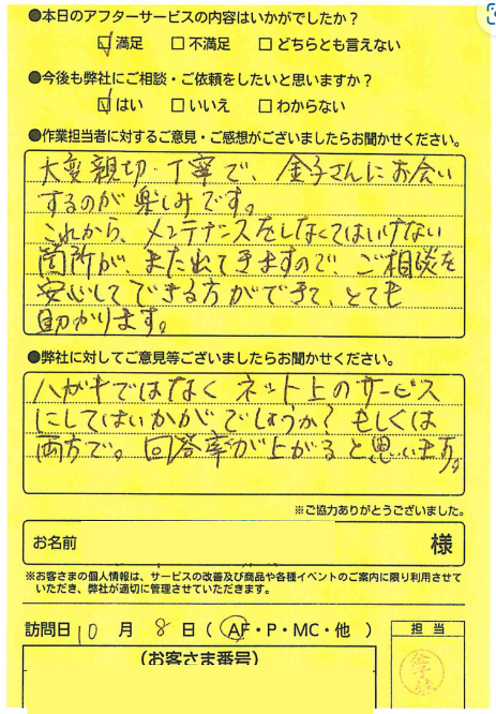 ●本日のアフターサービスの内容はいかがでしたか？
☑満足 □不満足 □どちらとも言えない
●今後も弊社にご相談・ご依頼をしたいと思いますか？
☑はい □いいえ □わからない
●作業担当者に対するご意見・ご感想がございましたらお聞かせください。
大変親切・丁寧で、金子さんにお会い
するのが楽しみです。
これから、メンテナンスをしなくてはいけない
箇所が、また出てきますので、ご相談を
安心してできる方ができて、とても
助かります。
●弊社に対してご意見等ございましたらお聞かせください。
ハガキではなくネット上のサービス
にしてはいかがでしょうか？もしくは
両方で。回答率が上がると思います。
※ご協力ありがとうございました。
お名前 様
※お客さまの個人情報は、サービスの改善及び商品や各種イベントのご案内に限り利用させて
いただき、弊社が適切に管理させていただきます。
訪問日 10 月 8 日（AF・P・MC・他 ）
担 当
(お客さま番号)
金子